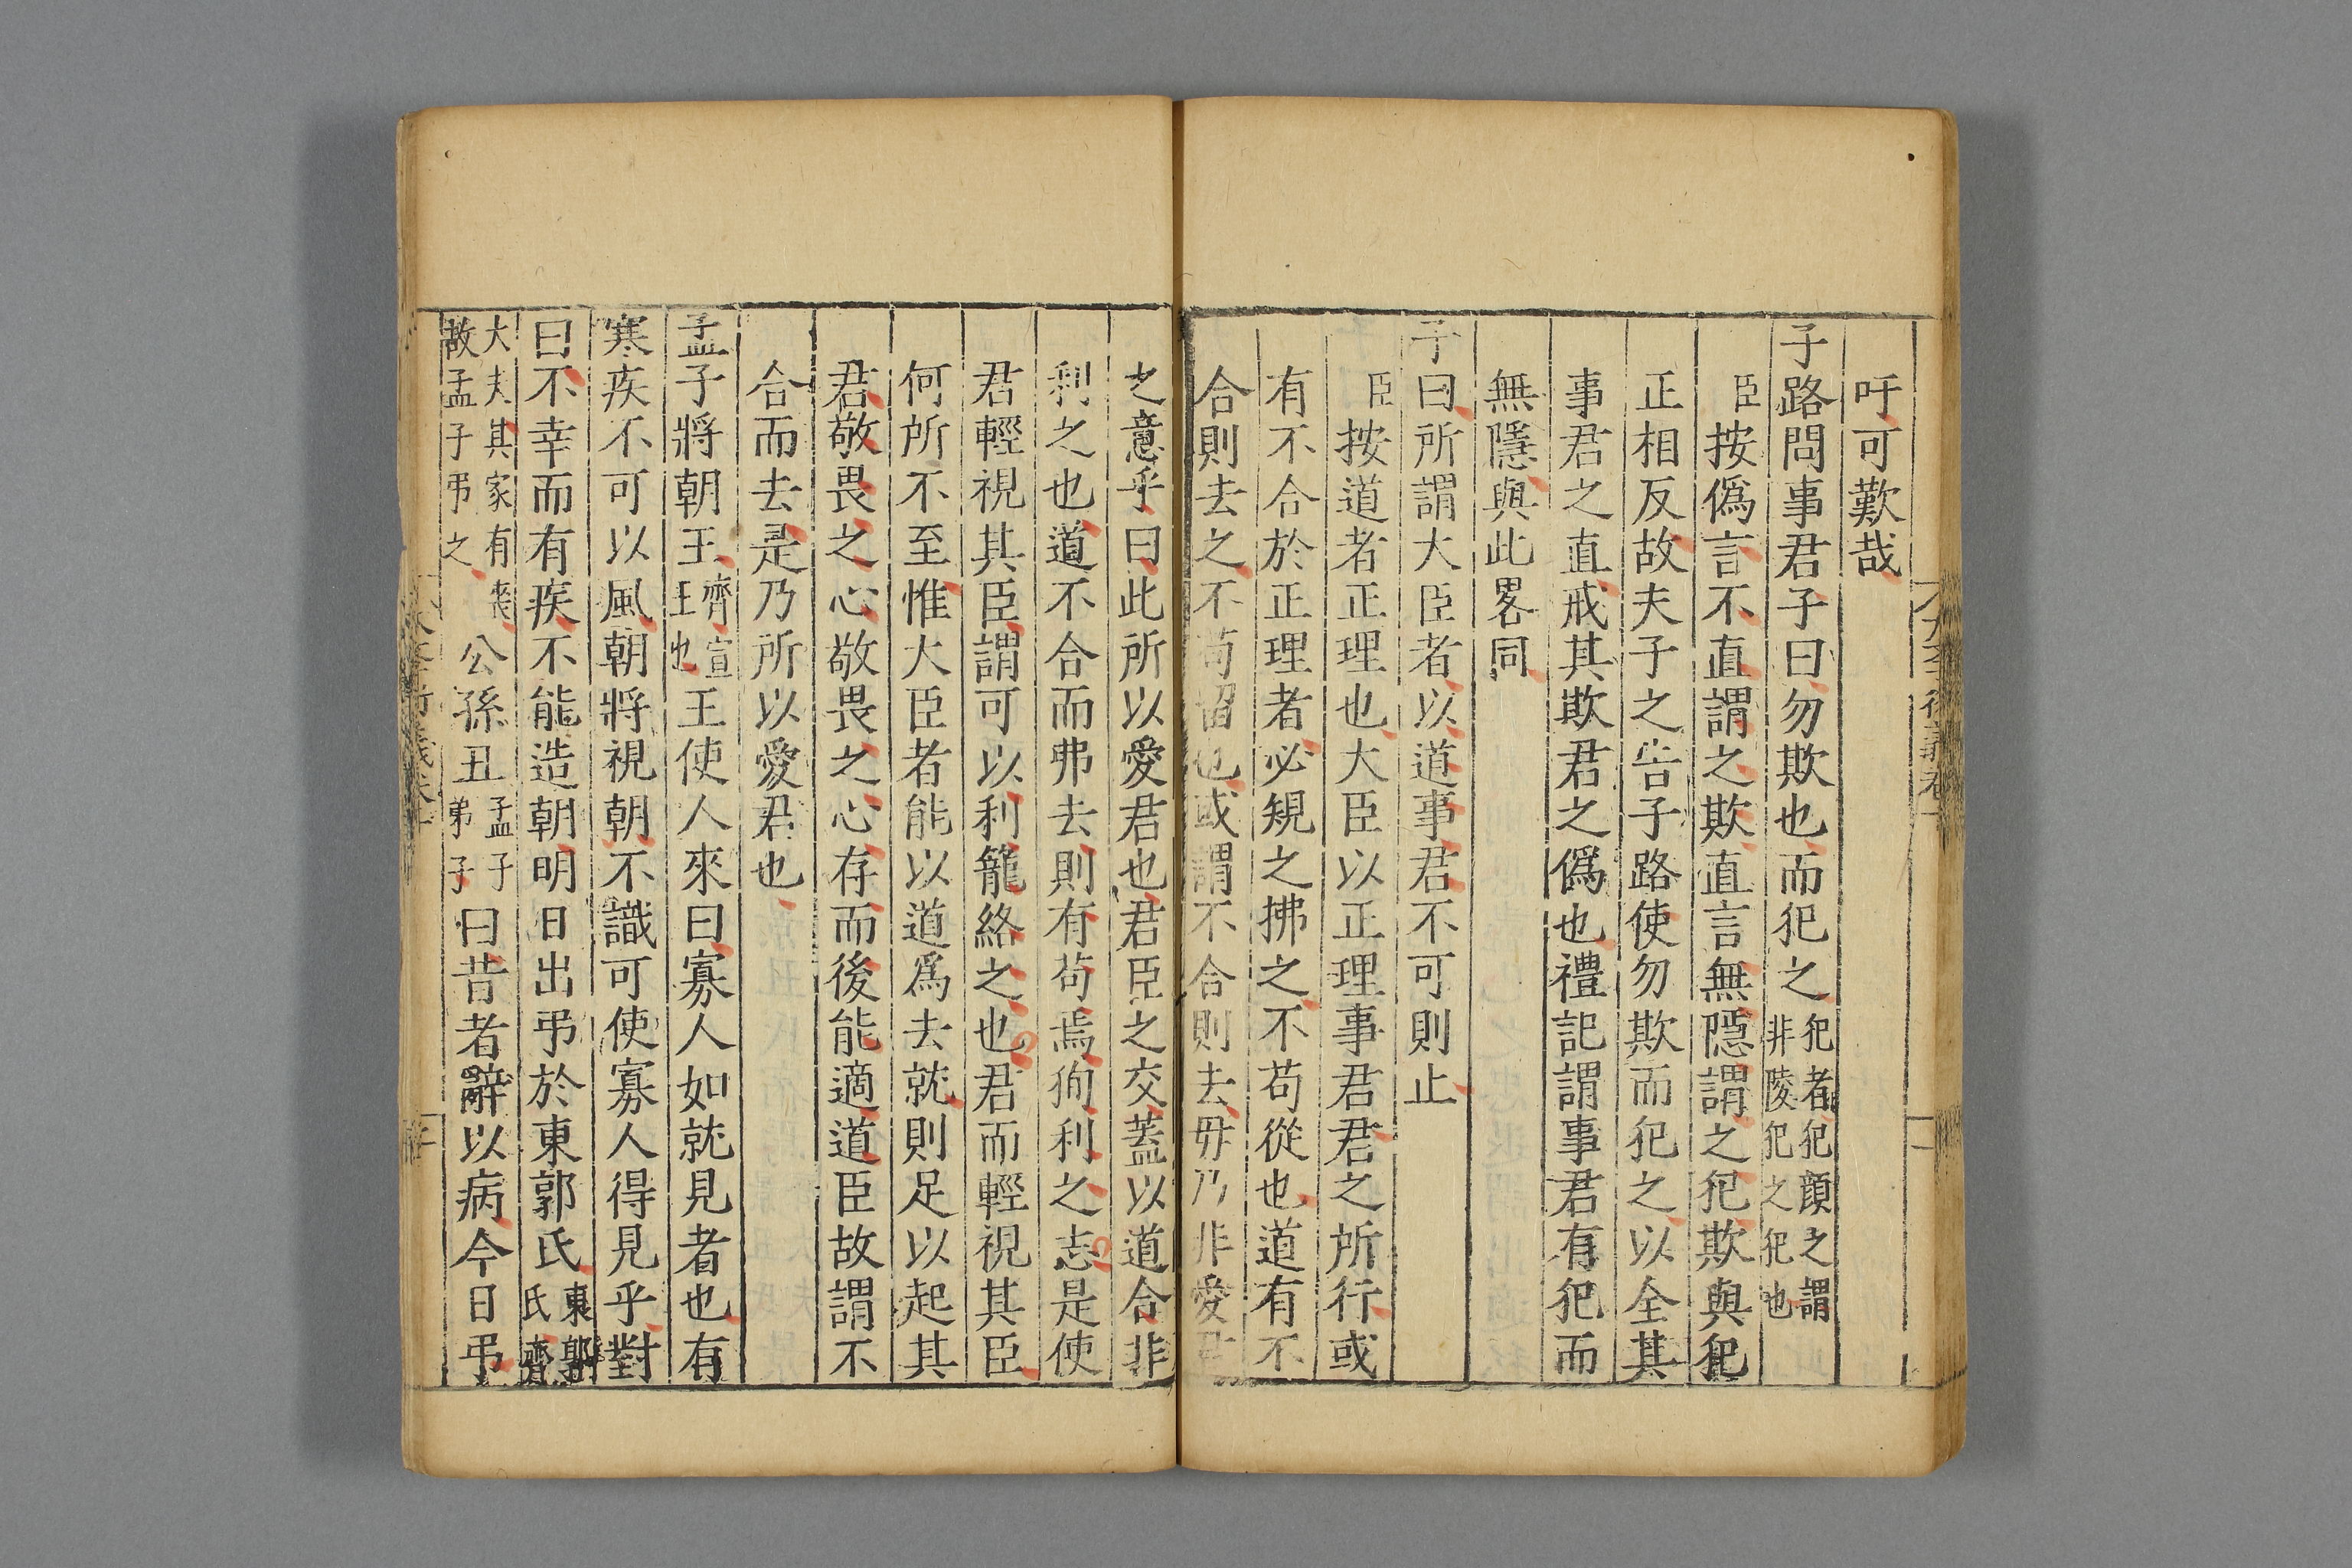 吁可歎哉
子路問事君子曰勿欺也而犯之犯者犯顔之謂非陵犯之犯也
臣按僞言不直謂之欺直言無隱謂之犯欺與犯
正相反故夫子之告子路使勿欺而犯之以全其
事君之直戒其欺君之僞也禮記謂事君有犯而
無隱與此畧同
子曰所謂大臣者以道事君不可則止
臣按道者正理也大臣以正理事君君之所行或
有不合於正理者必規之拂之不苟從也道有不
合則去之不苟留也或謂不合則去毋乃非愛君
之意乎曰此所以愛君也君臣之交蓋以道合非
利之也道不合而弗去則有苟焉狥利之志是使
君輕視其臣謂可以利籠絡之也君而輕視其臣
何所不至惟大臣者能以道爲去就則足以起其
君敬畏之心敬畏之心存而後能適道臣故謂不
合而去是乃所以愛君也
孟子將朝王齊宣王也王使人來曰寡人如就見者也有
寒疾不可以風朝將視朝不識可使寡人得見乎對
曰不幸而有疾不能造朝明日出弔於東郭氏東郭氏齊
大夫其家有喪故孟子弔之公孫丑孟子弟子曰昔者辭以病今日弔